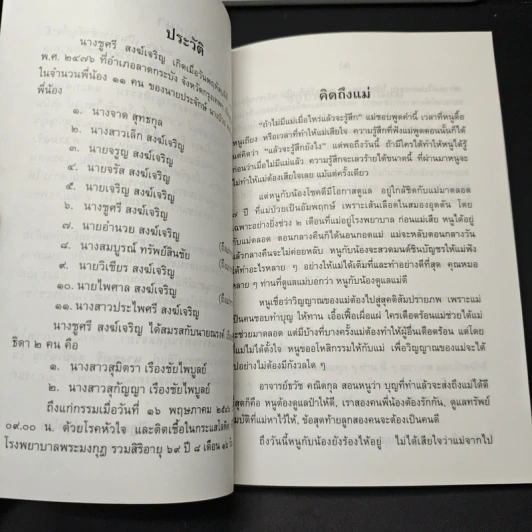 ประวัติ
นางชูศรี สงฆ์เจริญ เกิดเมื่อวันพฤหัสบดี
พ.ศ. ๒๔๗๖ ที่อำเภอลาดกระบัง จังหวัดกรุงเทพฯ
ในจำนวนพี่น้อง ๑๑ คน ของนายประจักษ์
พี่น้อง
๑. นางจาด สุทธกุล
๒. นางสาวเล็ก สงฆ์เจริญ
๓. นายจรูญ สงฆ์เจริญ
๔. นายจรัส สงฆ์เจริญ
๕. นายเจริญ สงฆ์เจริญ
๖. นางชูศรี สงฆ์เจริญ
๗. นายอำนวย สงฆ์เจริญ
๘. นางสมบูรณ์ ทรัพย์สินชัย
๙. นายวิเชียร สงฆ์เจริญ
๑๐. นายไพศาล สงฆ์เจริญ
๑๑. นางสาวประไพศรี สงฆ์เจริญ
นางชูศรี สงฆ์เจริญ ได้สมรสกับนายณรงค์
ธิดา ๒ คน คือ
๑. นางสาวสุมิตรา เรืองชัยไพบูลย์
๒. นางสาวสุกัญญา เรืองชัยไพบูลย์
ถึงแก่กรรมเมื่อวันที่ ๑๖ พฤษภาคม
๐๙.๐๐ น. ด้วยโรคหัวใจ และติดเชื้อในกระแสโลหิต
โรงพยาบาลพระมงกุฎ รวมสิริอายุ ๖๙ ปี ๘ เดือน ๑๖ วัน
คิดถึงแม่
"ถ้าไม่มีแม่เมื่อไหร่แล้วจะรู้สึก" แม่ชอบพูดคำนี้ เวลาที่หนูดื้อ
หนูเถียง หรือเวลาที่ทำให้แม่เสียใจ ความรู้สึกที่ฟังแม่พูดตอนนั้นก็ได้
แต่คิดว่า "แล้วจะรู้สึกยังไง" แต่พอถึงวันนี้ ถ้ามีใครได้ทำให้หนูได้รู้
ก่อนว่าเมื่อไม่มีแม่แล้ว ความรู้สึกจะเลวร้ายได้ขนาดนี้ ที่ผ่านมาหนูจะ
ไม่ทำให้แม่ต้องเสียใจเลย แม้แต่ครั้งเดียว
แต่หนูกับน้องโชคดีมีโอกาสดูแล อยู่ใกล้ชิดกับแม่มาตลอด
๗ ปี ที่แม่ป่วยเป็นอัมพฤกษ์ เพราะเส้นเลือดในสมองอุดตัน โดย
เฉพาะอย่างยิ่งช่วง ๒ เดือนที่แม่อยู่โรงพยาบาล ก่อนแม่เสีย หนูได้อยู่
กับแม่ตลอด ตอนกลางคืนก็ได้นอนกอดแม่ แม่จะหลับตอนกลางวัน
แล้วกลางคืนจะไม่ค่อยหลับ หนูกับน้องจะสวดมนต์ชินบัญชรให้แม่ฟัง
ได้ทำอะไรหลาย ๆ อย่างให้แม่ได้เต็มที่และทำอย่างดีที่สุด คุณหมอ
หลาย ๆ ท่านที่ดูแลแม่บอกว่า หนูกับน้องดูแลแม่ดี
หนูเชื่อว่าวิญญาณของแม่ต้องไปสู่สุคติสัมปรายภพ เพราะแม่
เป็นคนชอบทำบุญ ให้ทาน เอื้อเฟื้อเผื่อแผ่ ใครเดือดร้อนแม่ช่วยได้แม่
จะช่วยมาตลอด แต่มีบ้างที่บางครั้งแม่ต้องทำให้ผู้อื่นเดือดร้อน แต่โดย
แม่ไม่ได้ตั้งใจ หนูขออโหสิกรรมให้กับแม่ เพื่อวิญญาณของแม่จะได้
ไปอย่างไม่ต้องมีกังวลใด ๆ
อาจารย์ธวัช คณิตกุล สอนหนูว่า บุญที่ทำแล้วจะส่งถึงแม่ได้ดี
ที่สุดก็คือ หนูต้องดูแลป๋าให้ดี, เราสองคนพี่น้องต้องรักกัน, ดูแลทรัพย์
สมบัติที่แม่หาไว้ให้, ข้อสุดท้ายลูกสองคนจะต้องเป็นคนดี
ถึงวันนี้หนูกับน้องยังร้องไห้อยู่ ไม่ได้เสียใจว่าแม่จากไป